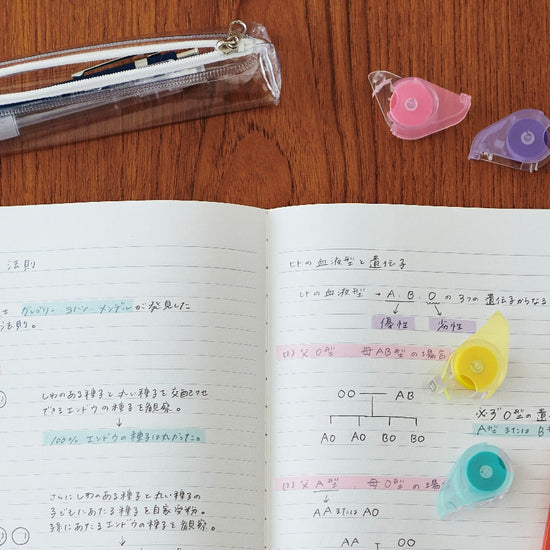 法則
は グレゴリー・ヨハン・メンデルが発見した
法則。
しわのある種子と丸い種子を交配させ
できるエンドウの種子を観察。
↓
100% エンドウの種子は丸かった。
さらにしわのある種子と丸い種子の
子どもにあたる種子を自家受粉。
孫にあたるエンドウの種子を観察。
↓
ヒトの血液型と遺伝子
ヒトの血液型 → A、B、Oの3つの遺伝子からなる
優性 劣性
父O型 母AB型の場合
OO AB
AO AO BO BO
※子の遺
A型またはB
父A型 母O型の場
↓
AAまたはAO
AA OO